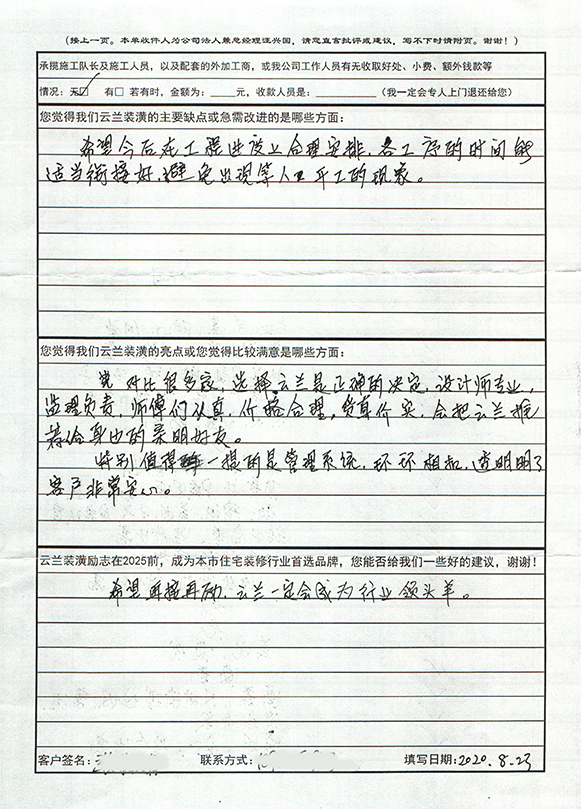 （接上一页。本单收件人为公司法人兼总经理汪兴国，请您直言批评或建议，写不下时请附页。谢谢！）
承揽施工队长及施工人员，以及配套的外加工商，或我公司工作人员有无收取好处、小费、额外钱款等
情况：无☑ 有□ 若有时，金额为：____元，收款人员是：__________（我一定会专人上门退还给您）
您觉得我们云兰装潢的主要缺点或急需改进的是哪些方面：
希望今后在工程进设上合理安排，各工序的时间能
适当衔接好，避免出现等人口开工的现象。
您觉得我们云兰装潢的亮点或您觉得比较满意是哪些方面：
对比很多家，选择云兰是正确的决定，设计师专业，
监理负责，师傅们认真，价格合理，货真价实，会把云兰推
荐给身边的亲朋好友。
特别值得一提的是管理系统，环环相扣，透明明了
客户非常安心。
云兰装潢励志在2025前，成为本市住宅装修行业首选品牌，您能否给我们一些好的建议，谢谢！
希望再接再励，云兰一定会成为行业领头羊。
客户签名： 联系方式： 填写日期：2020.8.23